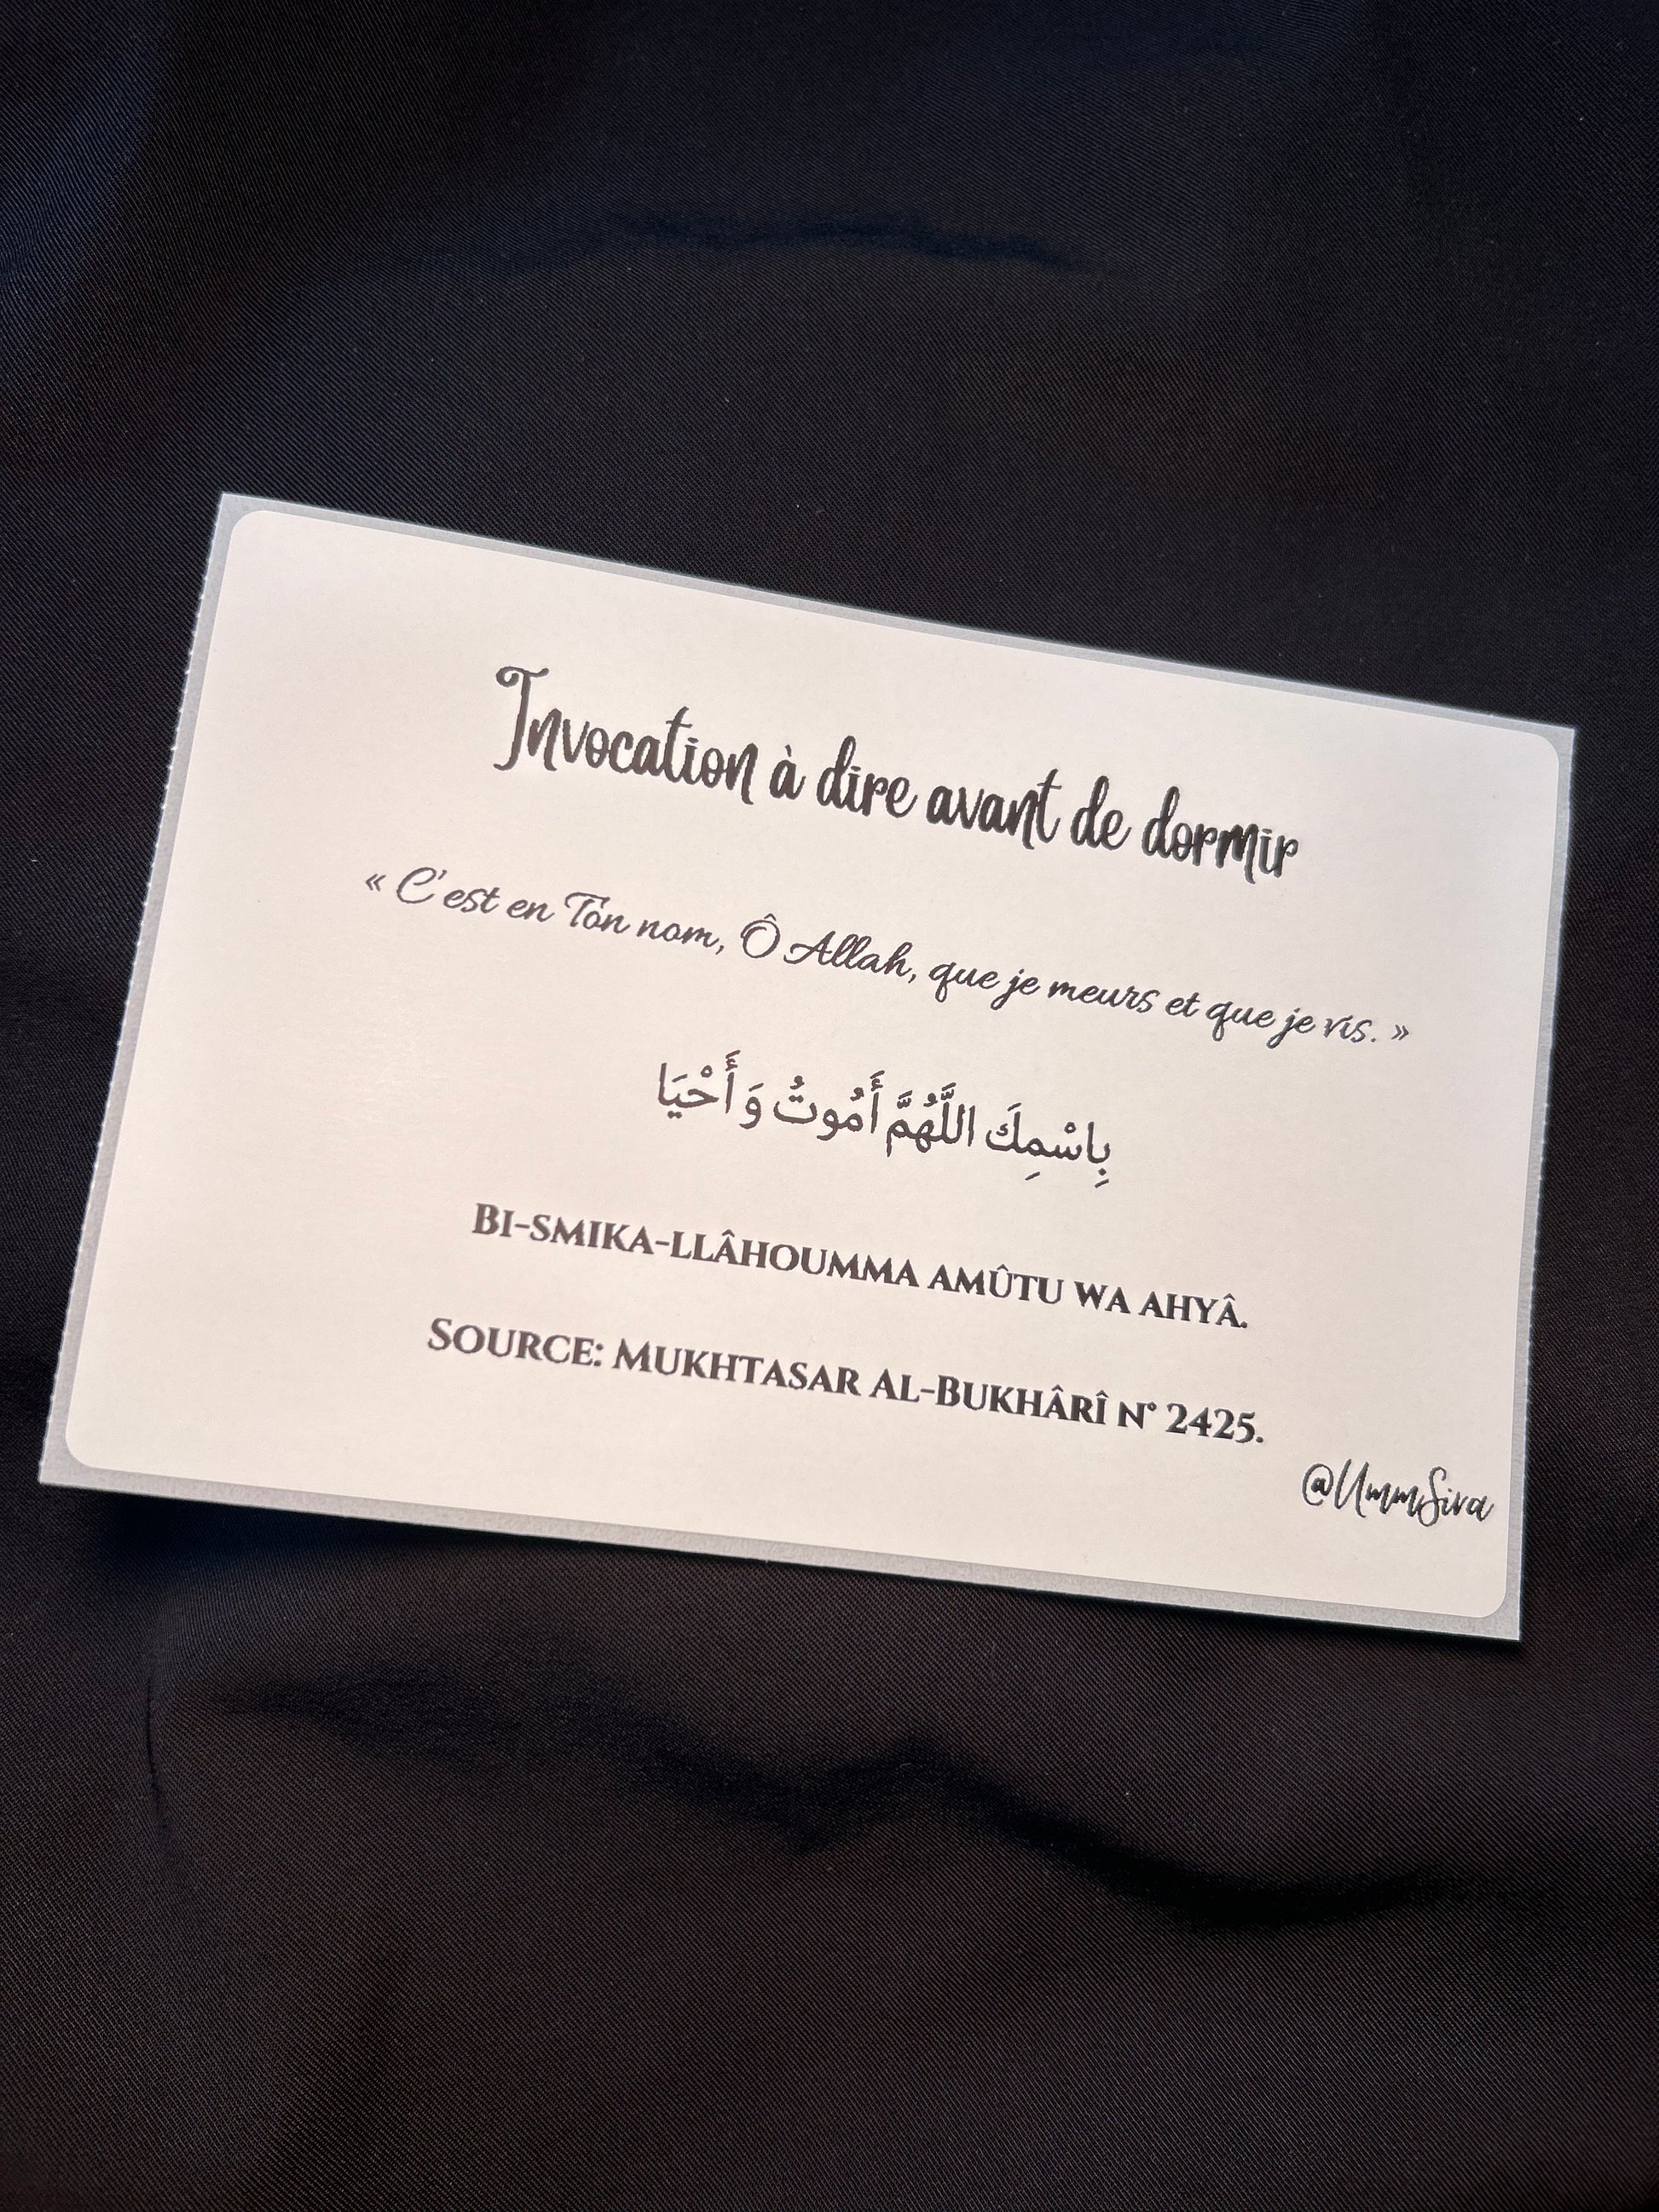 Invocation à dire avant de dormir
« C'est en Ton nom, Ô Allah, que je meurs et que je vis. »
بِاسْمِكَ اللَّهُمَّ أَمُوتُ وَ أَحْيَا
BI-SMIKA-LLÂHOUMMA AMÛTU WA AHYÂ.
SOURCE: MUKHTASAR AL-BUKHÂRÎ N° 2425.
@UmmSira